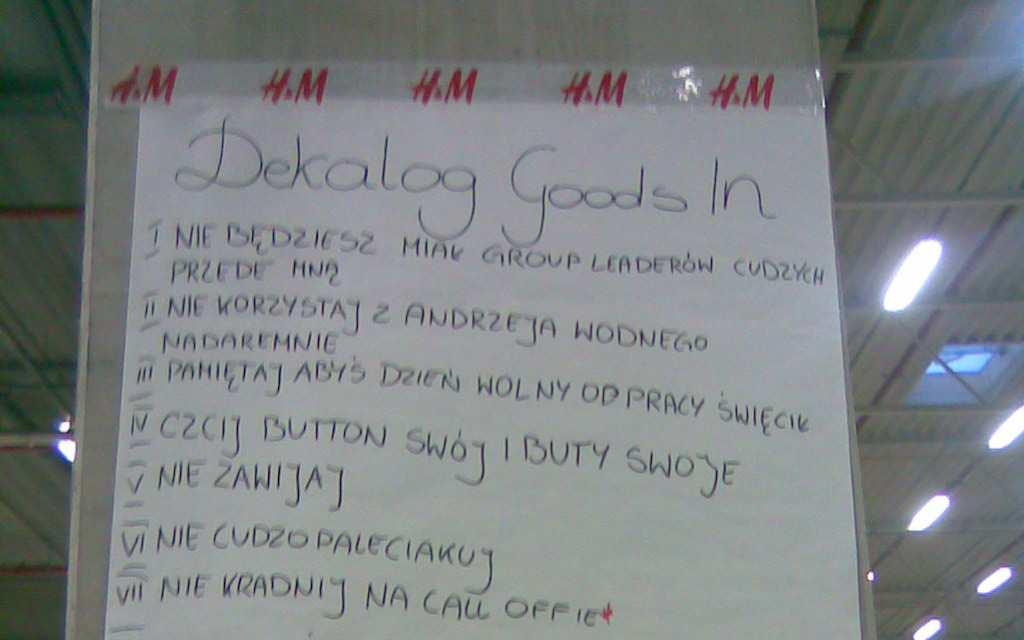 H&M H&M H&M H&M H&M
Dekalog Goods In
I NIE BĘDZIESZ MIAŁ GROUP LEADERÓW CUDZYCH
PRZEDE MNĄ
II NIE KORZYSTAJ Z ANDRZEJA WODNEGO
NADAREMNIE
III PAMIĘTAJ ABYŚ DZIEŃ WOLNY OD PRACY ŚWIĘCIŁ
IV CZCIJ BUTTON SWÓJ I BUTY SWOJE
V NIE ZAWIJAJ
VI NIE CUDZOPALECIAKUJ
VII NIE KRADNIJ NA CALL OFFIE*